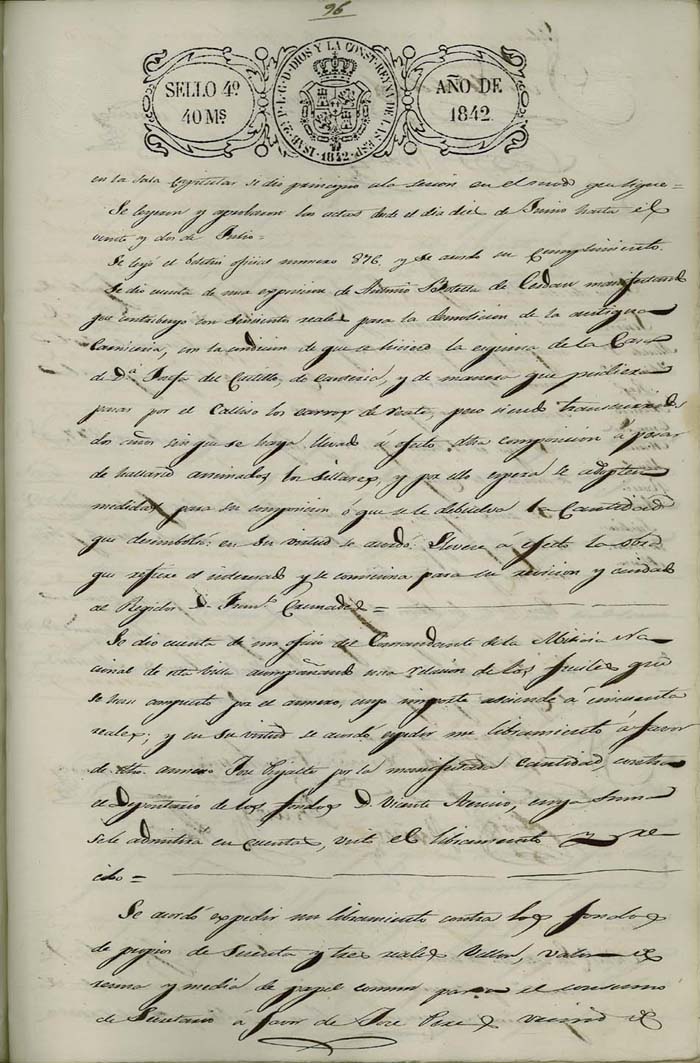 96
SELLO 4º
40 Ms
ISAB. 2ª P. L. G. D. DIOS Y LA CONST. REYNA DE LAS ESP. 1842
AÑO DE
1842
en la Sala Capitular se dio principio a la sesion en el modo que sigue=
Se leyeron y aprobaron las actas desde el dia diez de Junio hasta el
veinte y dos de Julio=
Se leyó el boletin oficial numero 876, y se acordo su cumplimiento.
Se dio cuenta de una exposicion de Antonio Botella de manifestando
que contribuyó con reales para la demolicion de la antigua
Carniceria, con la condicion de que se hiciera la esquina de la Casa
de D.ª Josefa del Castillo, de canteria, y de manera que pudieran
pasar por el Callizo los carros de , pero siendo transcurridos
dos años sin que se haya llevado a efecto dha composicion á pesar
de hallarse arrimados los Sillares, y por ello espera se adopten
medidas para su composicion ó que se le debuelva la Cantidad
que desembolsó: en su virtud se acordó: Llevese á efecto la obra
que refiere el interesado y se comisiona para su revision y cuidado
al Regidor D. Fran.co =
Se dio cuenta de un oficio del Comandante de la Milicia Na-
cional de esta Villa acompañando una relacion de los fusiles que
se han compuesto por el armero, cuyo importe asciende á cincuenta
reales; y en su virtud se acordó espedir un libramiento á favor
de dho. armero José por la manifestada cantidad, contra
el Depositario de los fondos D. Vicente , cuya suma
se le admitira en cuenta, con el libramiento y re-
cibo=
Se acordó expedir un libramiento contra los fondos
de propios de y tres reales Vellon, valor de
resma y media de papel comun para el consumo
de Secretaria á favor de José vecino de